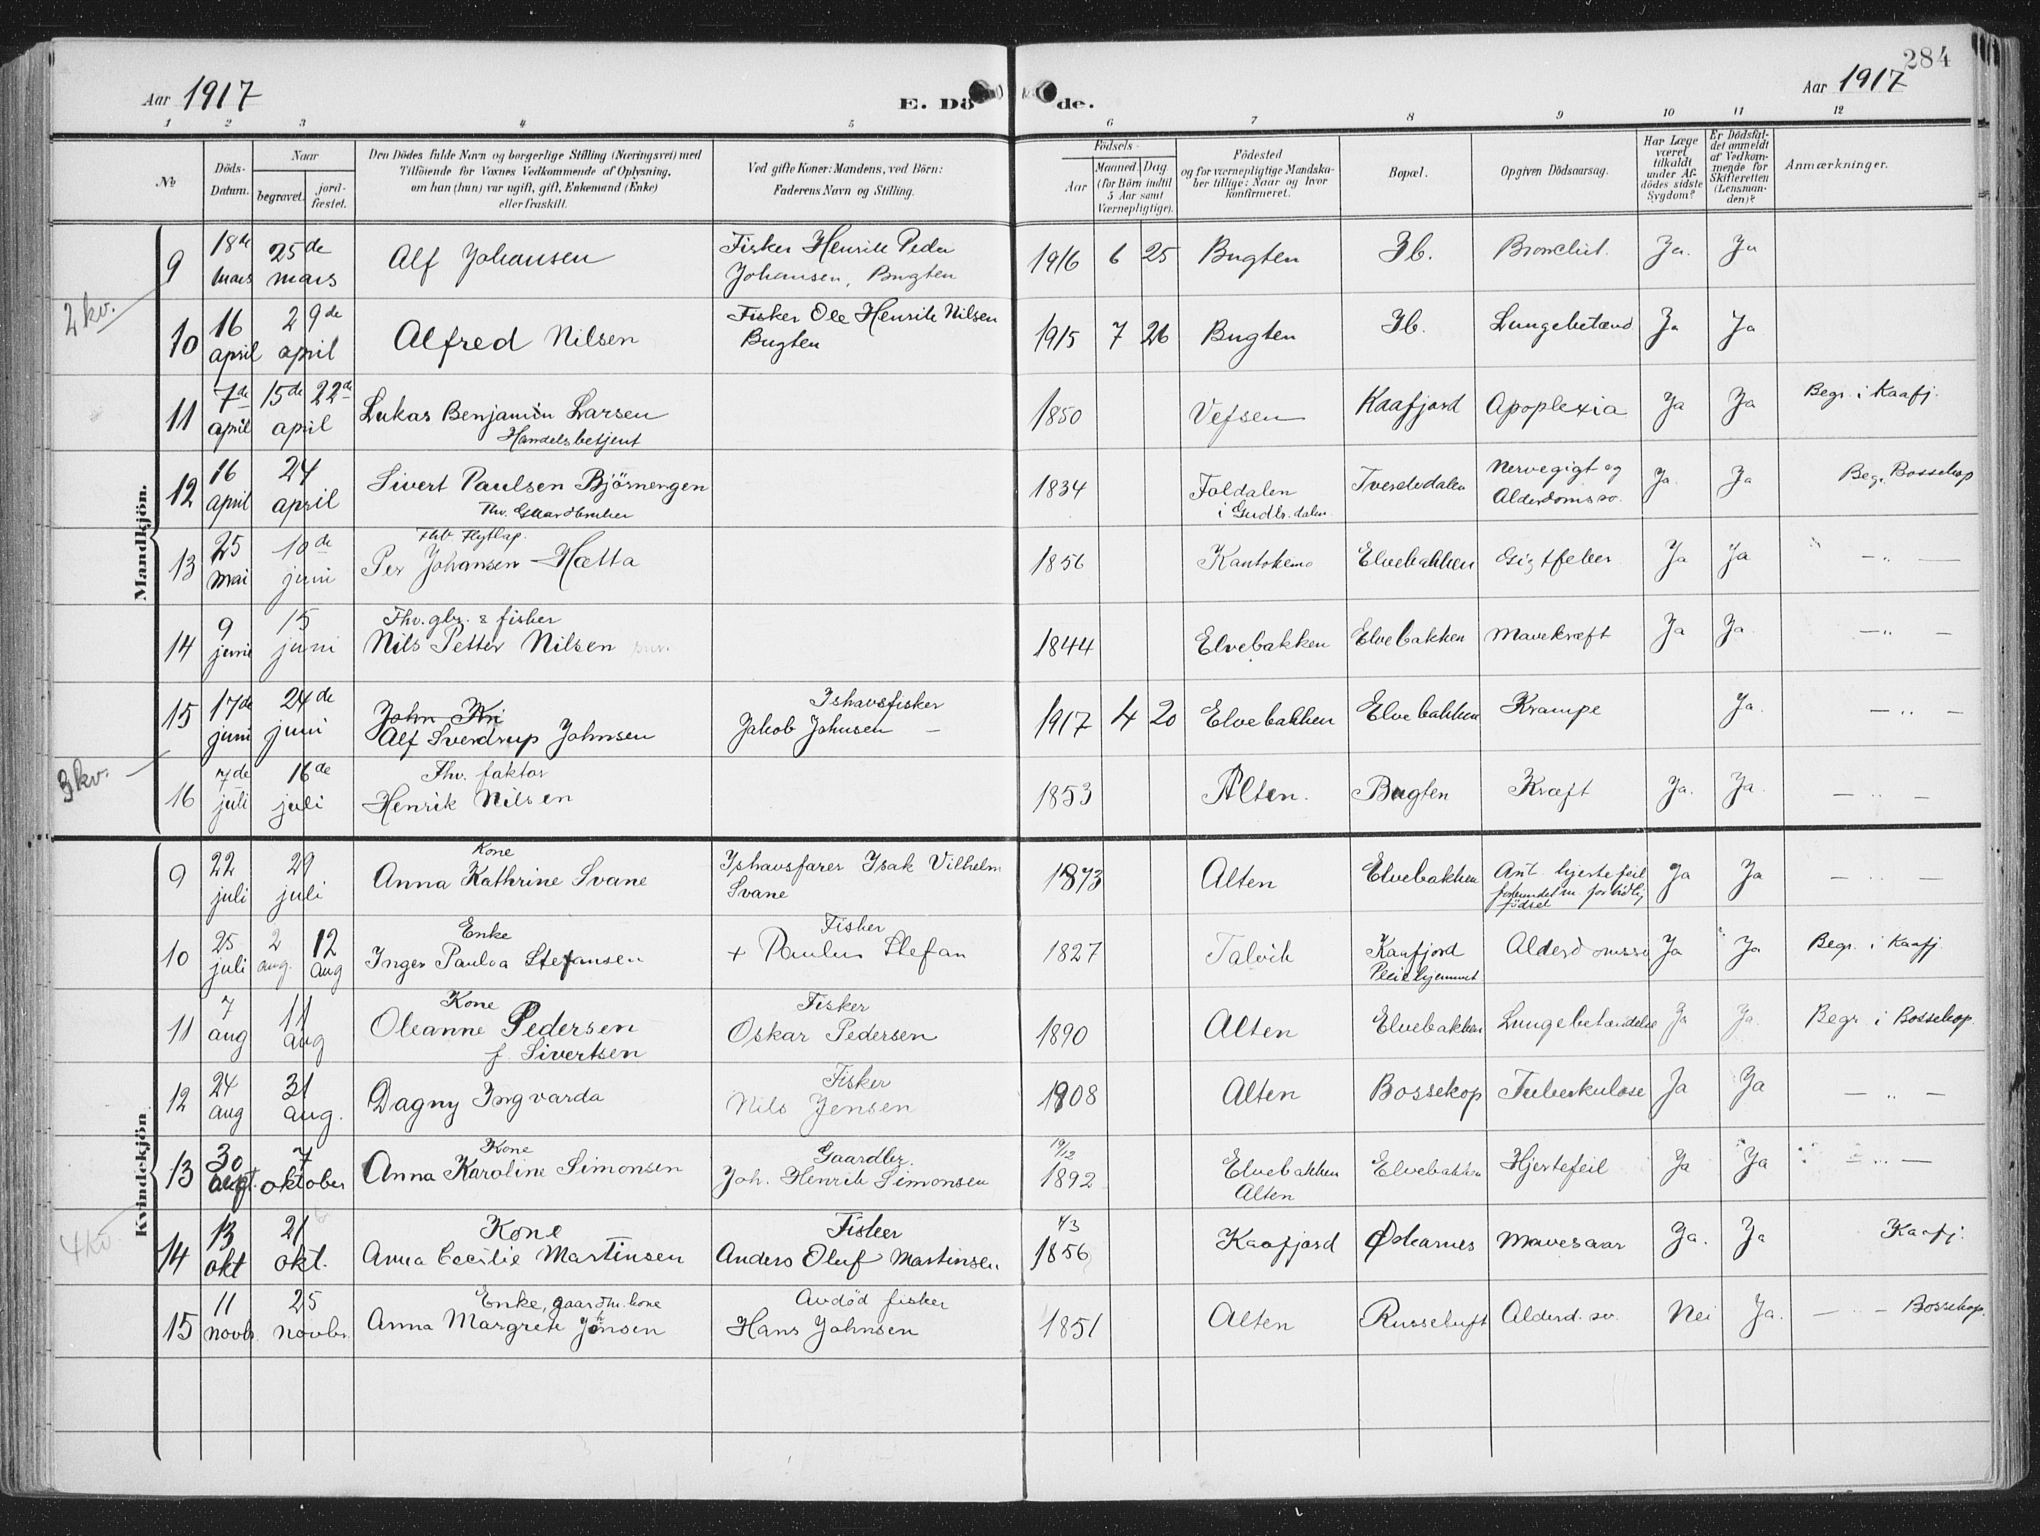 284
Aar 1917
E. Döde.
Aar 1917
1 2 3 4 5 6 7 8 9 10 11 12
No
Döds-Datum.
Naar
begravet.
jordfæstet.
Den Dödes fulde Navn og borgerlige Stilling (Næringsvei) med
Tilföiende for Voxnes Vedkommende af Oplysning,
om han (hun) var ugift, gift, Enkemand (Enke)
eller fraskilt.
Ved gifte Koner: Mandens, ved Börn:
Faderens Navn og Stilling.
Födsels-
Aar
Maaned
Dag
(for Börn indtil
5 Aar samt
Værnepligtige).
Födested
og for værnepligtige Mandskaber tillige: Naar og hvor
konfirmeret.
Bopæl.
Opgiven Dödsaarsag.
Har Læge
været
tilkaldt
under Afdödes sidste
Sygdom?
Er Dödsfaldet anmeldt
af Vedkommende for
Skifteretten
(Lensmanden)?
Anmærkninger.
Mandkjön.
2 kv.
9 18de mars 25de mars Alf Johansen Fisker Henrik Peder Johansen, Bugten 1916 6 25 Bugten Ib. Bronchit. Ja. Ja
10 16 april 29de april Alfred Nilsen Fisker Ole Henrik Nilsen Bugten 1915 7 26 Bugten Ib. Lungebetænd Ja Ja
11 7de april 15de 22de april Lukas Benjamin Larsen Handelsbetjent 1850 Vefsen Kaafjord Apoplexia Ja Ja Begr. i Kaafj.
12 16 april 24 april Sivert Paulsen Björnengen Fhv. Gaardbruker 1834 Foldalen i Gudbr.dalen Tverelvdalen Nervegigt og Alderdomssv. Ja. Ja Begr. Bossekop
13 25 mai 10de juni Fhv Flytlap. Per Johansen Hætta 1856 Kautokeino Elvebakken Gigtfeber Ja Ja — „ —
14 9 juni 15 juni Fhv. gbr. & fisker Nils Petter Nilsen 1844 Elvebakken Elvebakken Mavekræft Ja Ja — „ —
15 17de juni 24de juni John Kri Alf Sverdrup Johnsen Ishavsfisker Jakob Johnsen — 1917 4 20 Elvebakken Elvebakken Krampe Ja. — „ —
3 kv.
16 7de juli 16de juli Fhv. faktor Henrik Nilsen 1853 Alten. Bugten Kræft Ja. Ja. — „ —
Kvindekjön
9 22 juli 29 juli Kone Anna Kathrine Svane Ishavsfarer Isak Vilhelm Svane 1873 Alten Elvebakken Ant. hjertefeil forbundet m. for tidlig födsel Ja Ja — „ —
10 25 juli 2 aug. 12 aug Enke Inger Paulva Stefansen Fisker + Paulus Stefan 1827 Talvik Kaafjord Pleiehjemmet Alderdomssv Ja Ja Begr. i Kaafj.
11 7 aug 11 aug Kone Oleanne Pedersen f. Sivertsen Fisker Oskar Pedersen 1890 Alten Elvebakken Lungebetændelse Ja Ja. Begr. i Bossekop.
12 24 aug 31 aug. Dagny Ingvarda Fisker Nils Jensen 1908 Alten Bossekop Tuberkulose Ja Ja — „ —
13 30 7 oktober Kone Anna Karoline Simonsen Gaardbr. Joh. Henrik Simonsen 19/12 1892 Elvebakken Alten Elvebakken Hjertefeil Ja Ja — „ —
4 kv.
14 13 okt 21 okt. Kone Anna Cecilie Martinsen Fisker Anders Oluf Martinsen 4/3 1856 Kaafjord Øskarnes Mavesaar Ja. Ja Kaafj.
15 11 novbr. 25 novbr. Enke, gaardbr. kone Anna Margrete Jonsen Avdöd fisker Hans Johnsen 1851 Alten Russeluft Alderd. sv. Nei Ja. — „ — Bossekop.